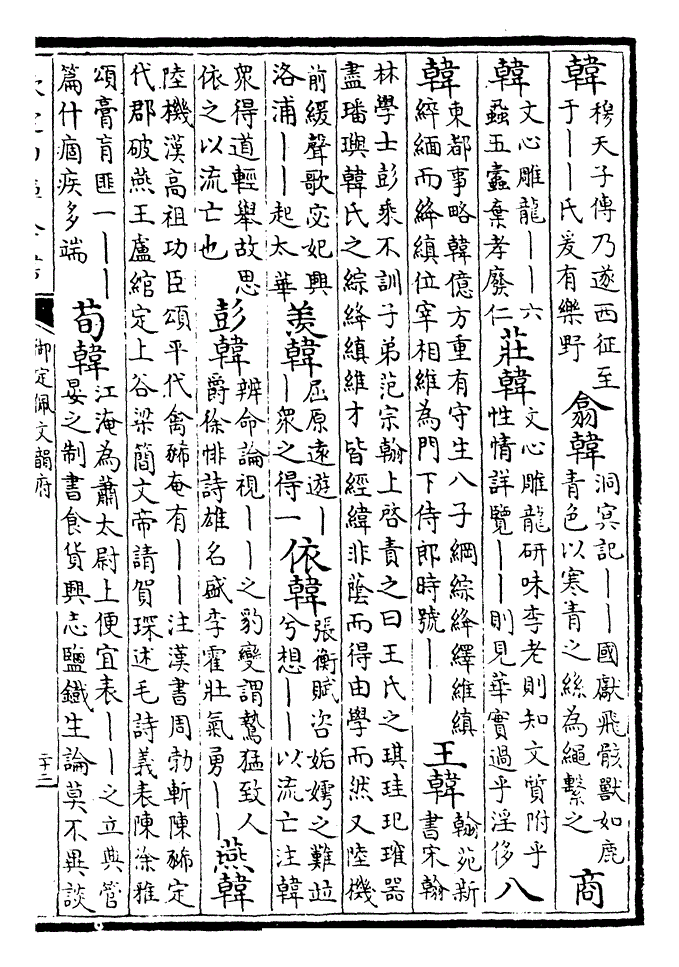 韓
穆天子傳乃遂西征至
于——氏爰有樂野
翕韓
洞冥記——國獻飛骸獸如鹿
青色以寒青之絲為繩繫之
商
韓
文心雕龍——六
蝨五蠧棄孝廢仁
莊韓
文心雕龍研味李老則知文質附乎
性情詳覽——則見華實過乎淫侈
八
韓
東都事略韓億方重有守生八子綱綜絳繹維縝
綷緬而絳縝位宰相維為門下侍郎時號——
王韓
翰苑新
書宋翰
林學士彭乘不訓子弟范宗翰上啓責之曰王氏之琪珪玘琟器
盡璠璵韓氏之綜絳縝維才皆經緯非蔭而得由學而然又陸機
前緩聲歌宓妃興
洛浦——起太華
羨韓
屈原遠遊—
—衆之得一
依韓
張衡賦咨姤嫮之難竝
兮想——以流亡注韓
衆得道輕舉故思
依之以流亡也
彭韓
辨命論視——之豹變謂鷙猛致人
爵徐悱詩雄名盛李霍壯氣勇——
燕韓
陸機漢高祖功臣頌平代禽豨奄有——注漢書周勃斬陳豨定
代郡破燕王盧綰定上谷梁簡文帝請賀琛述毛詩義表陳徐雅
頌膏肓匪一——
篇什痼疾多端
荀韓
江淹為蕭太尉上便宜表——之立典管
晏之制書食貨興志鹽鐵生論莫不異談
御定佩文韻府
二十二